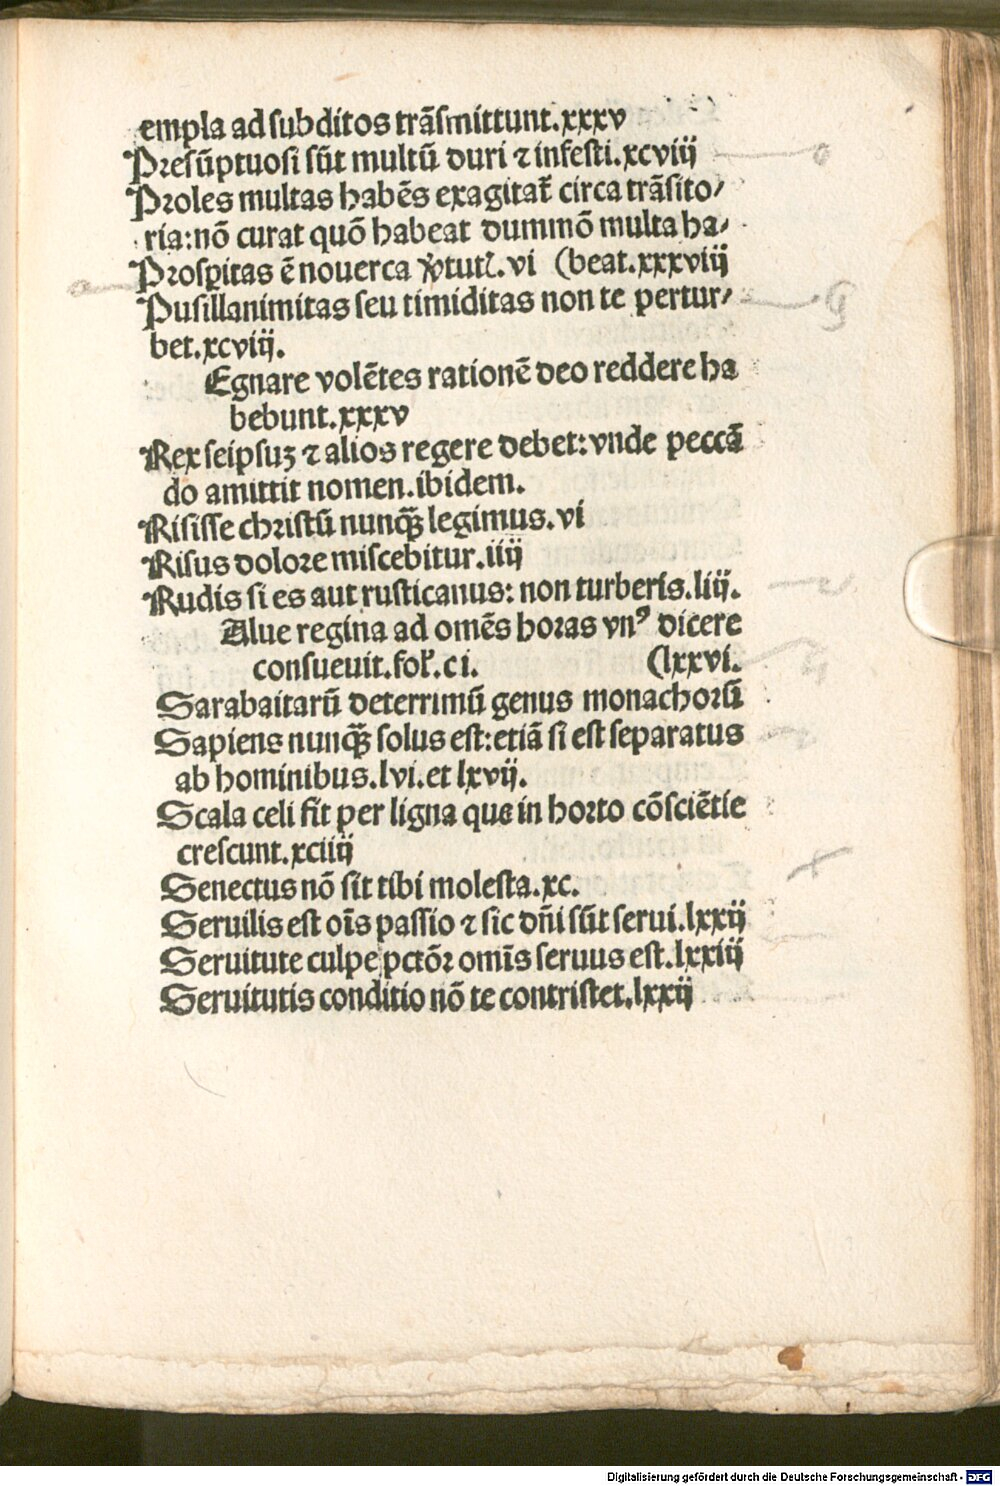 empla ad subditos trãsmittunt.xxxv
Presũptuosi sũt multũ duri ⁊ infesti.xcviij
Proles multas habẽs exagitat̃ circa trãsito/
ria:nõ curat quõ habeat dummõ multa ha/
Prosꝑitas ẽ nouerca ꝟtutꝝ.vi (beat.xxxviij
Pusillanimitas seu timiditas non te pertur/
bet.xcviij.
Egnare volẽtes rationẽ deo reddere ha
bebunt.xxxv
Rex seipsuz ⁊ alios regere debet:vnde peccã
do amittit nomen.ibidem.
Risisse christũ nunq̃ꝫ legimus.vi
Risus dolore miscebitur.iiij
Rudis si es aut rusticanus: non turberis.liij.
Alue regina ad omẽs horas vnꝰ dicere
consueuit.fol̃.ci. (lxxvi.
Sarabaitarũ deterrimũ genus monachorũ
Sapiens nunq̃ꝫ solus est:etiã si est separatus
ab hominibus.lvi.et lxvij.
Scala celi fit per ligna que in horto cõsciẽtie
crescunt.xciiij
Senectus nõ sit tibi molesta.xc.
Seruilis est oĩs passio ⁊ sic dñi sũt serui.lxxij
Seruitute culpe pctõꝝ omĩs seruus est.lxxiij
Seruitutis conditio nõ te contristet.lxxij
Digitalisierung gefördert durch die Deutsche Forschungsgemeinschaft - DFG